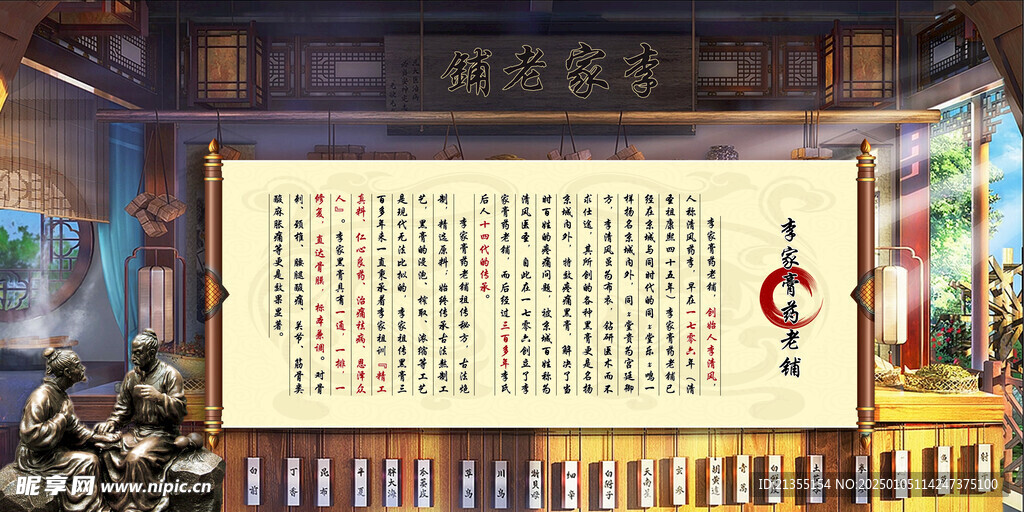 李家老铺
李家膏药老铺
李家膏药老铺，创始人李清风，
人称清风药李，早在一七零六年（清
圣祖康熙四十五年）李家膏药老铺已
经在京城与同时代的同*堂乐*鸣一
样扬名京城内外，同*堂贵药宫廷御
方，李清风虽药布衣，钻研医术而不
求仕途，其所创的各种黑膏更是名扬
京城内外，特效疼痛黑膏，解决了当
时百姓的疼痛问题，被京城百姓称药
清风医圣，自此在一七零六创立了李
家膏药老铺，而后经过三百多年李氏
后人十四代的传承。
李家膏药老铺祖传秘方，古法炮
制，精选原料；始终传承古法熬制工
艺，黑膏的浸泡、榨取、浓缩等工艺
是现代无法比拟的，李家祖传黑膏三
百多年来一直秉承着李家祖训『精工
真料，仁心良药，治痛祛病，恩泽众
人』。李家黑膏具有一通，一排，一
修复，直达骨膜，标本兼调。对骨
刺、颈椎、腰腿酸痛、关节、筋骨类
酸麻胀痛等更是效果显著。
白前
丁香
昆布
半夏
胖大海
冬蒌皮
草乌
川乌
浙贝母
细辛
白附子
天南星
玄参
胡黄连
青蒿
白皮
昵享网 www.nipic.cn
ID:21355154 NO:20250105114247375100